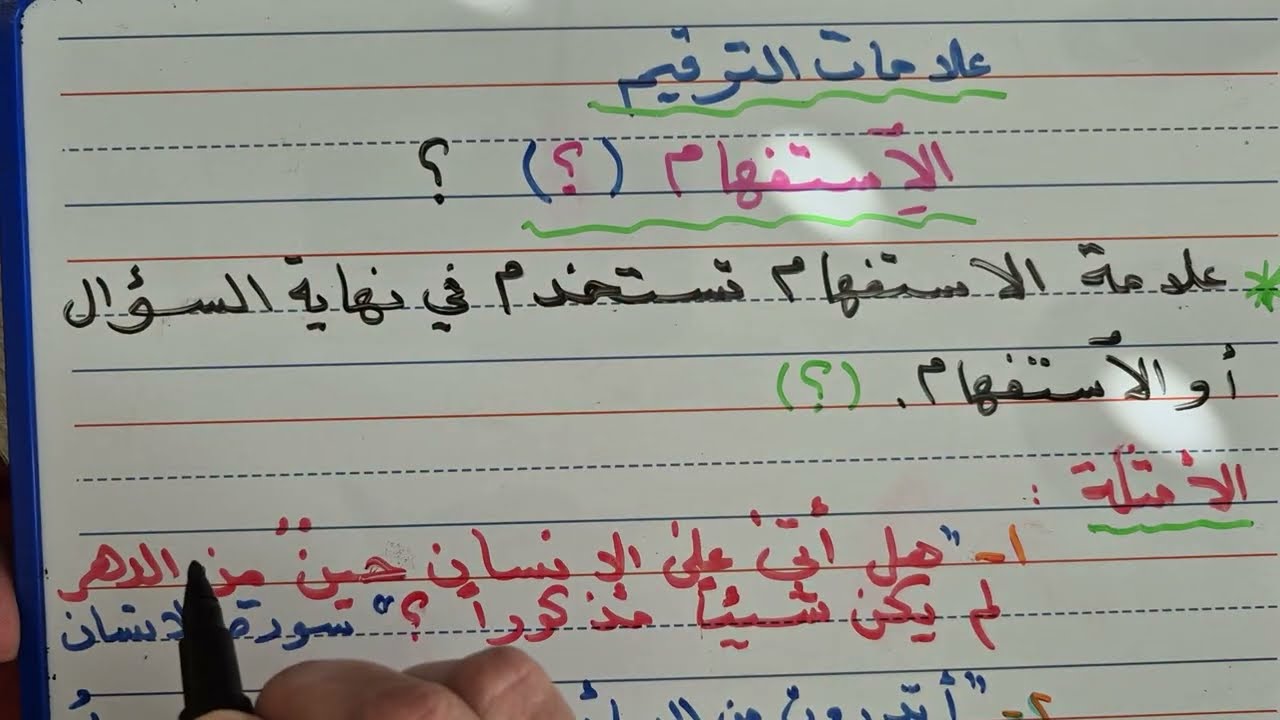 علامات الترقيم
الاِستفهام (؟) ؟
* علامة الاستفهام تستخدم في نهاية السؤال
أو الاستفهام. (؟)
الأمثلة :
١- "هل أتىٰ علىٰ الإنسان حينٌ من الدهر
لم يكن شيئاً مذكوراً ؟" سورة الإنسان
٢- "أتدرون من